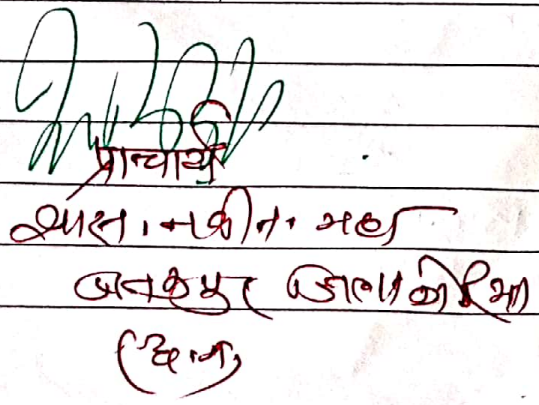 प्राचार्य
शास. नवीन. महा
जनकपुर जिला कोरिया
(छ.ग.)